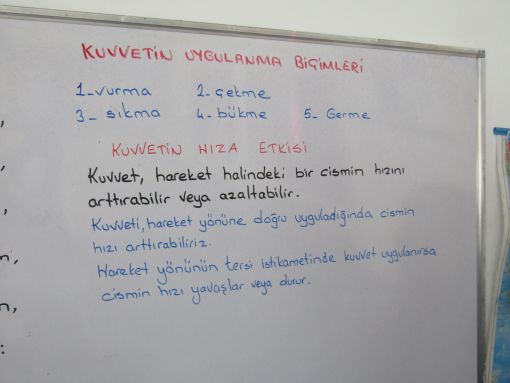 KUVVETİN UYGULANMA BİÇİMLERİ
1-vurma 2-çekme
3-sıkma 4-bükme 5-Germe
KUVVETİN HIZA ETKİSİ
Kuvvet, hareket halindeki bir cismin hızını
arttırabilir veya azaltabilir.
Kuvveti, hareket yönüne doğru uyguladığında cismin
hızı arttırabiliriz.
Hareket yönünün tersi istikametinde kuvvet uygulanırsa
cismin hızı yavaşlar veya durur.